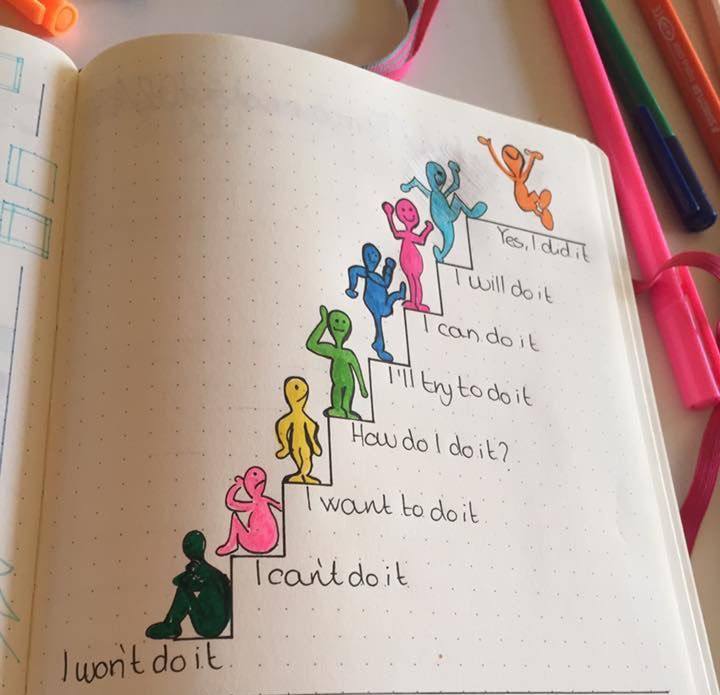 Yes, I did it
I will do it
I can do it
I'll try to do it
How do I do it?
I want to do it
I can't do it
I won't do it